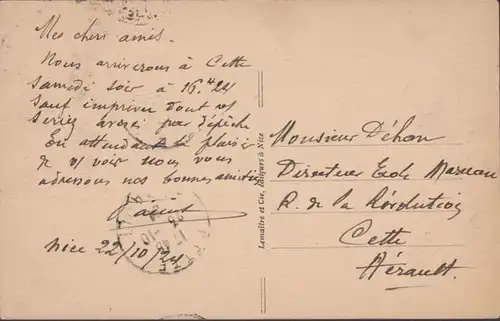 Mes chers amis.
Nous arriverons à Cette
samedi soir à 16.H 24
sauf imprévu dont vs
seriez avisés par dépêche
En attendant le plaisir
de vs voir nous vous
adressons nos bonnes amitiés
Nice 22/10/24
Lemaître et Cie, éditeurs à Nice
Monsieur Déhan
Directeur Ecole Marceau
R. de la Révolution
Cette
Hérault.